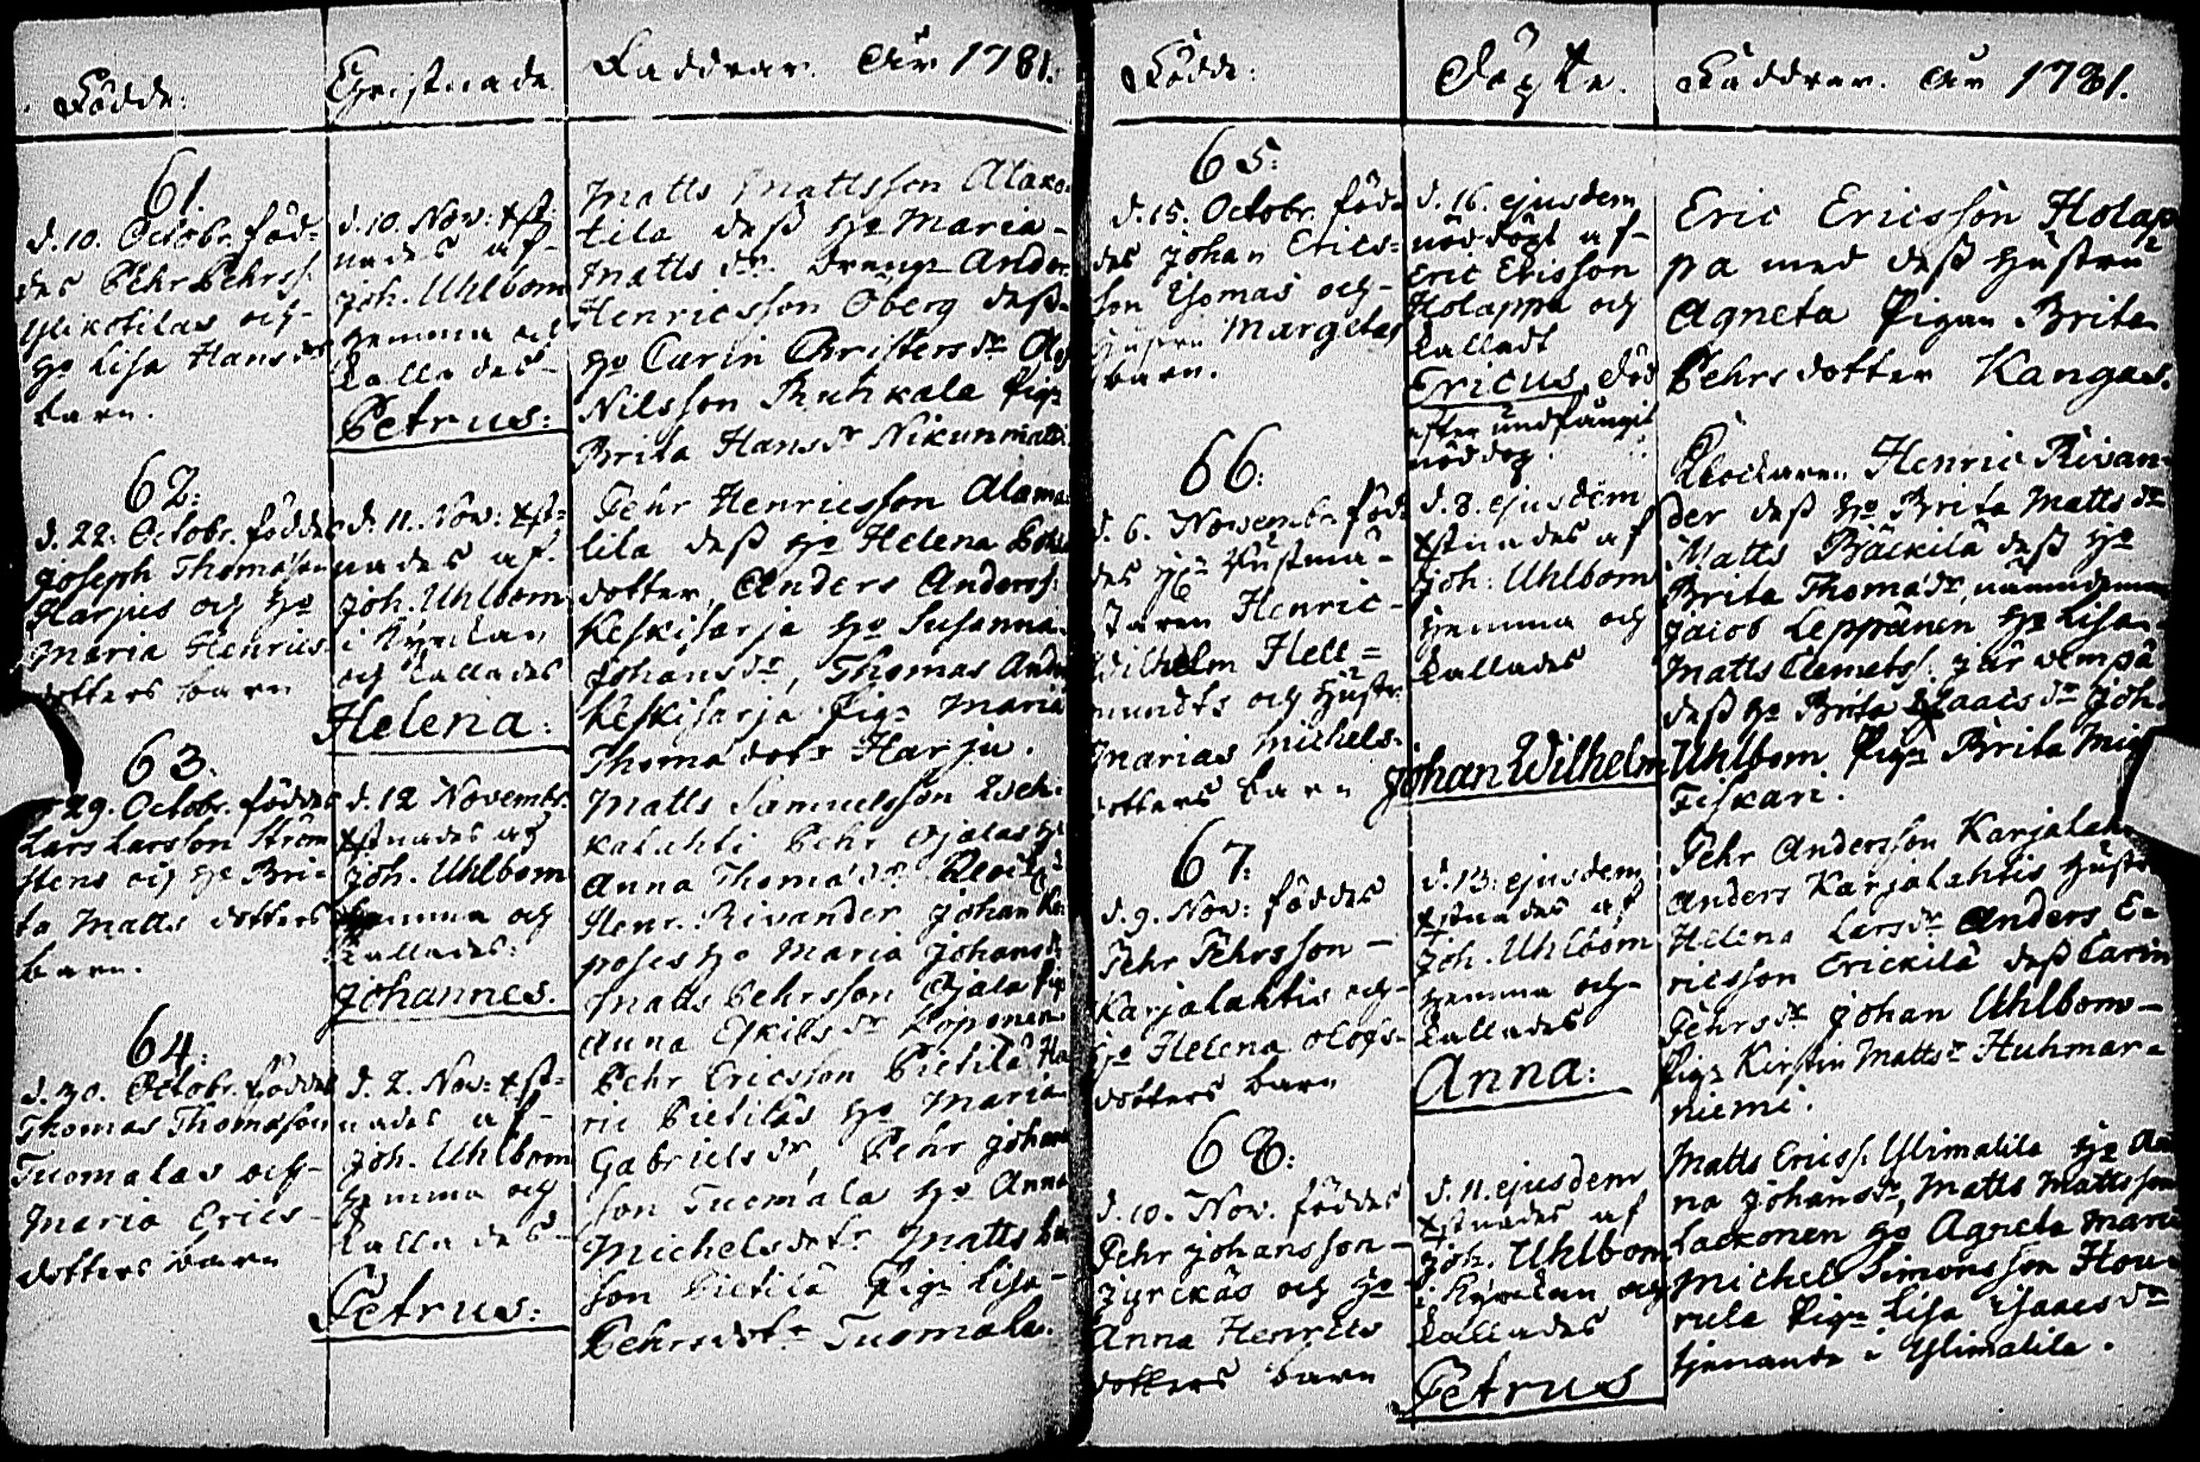 Födde:
Christnade
Faddrar. År 1781.
61.
d. 10. Octobr. föd=
des Pehr Pehrss.
Ylikotilas och
ho Lisa Hans dr
barn.
d. 10. Nov: xst=
nades af
Joh. Uhlbom
hemma och
kallades
Petrus:
Matts Mattsson Alako=
tila dess ho Maria
Matts dr. Dräng Ander
Henricsson Öberg dess
ho Carin Christers dr
Nilsson Ruhkala Pig:
Brita Hans dr Nikunmatti
62:
d. 22. Octobr. föddes
Joseph Thomasson
Harjus och ho
Maria Henrics
dotters barn
d. 11. Nov: xst=
nades af
Joh. Uhlbom
i Kyrckan
och kallades
Helena:
Pehr Henricsson Alama
lila dess ho Helena
dotter, Anders Anderss:
Keskisarja ho Susanna
Johans dr, Thomas
Keskisarja Pig: Maria
Thomadotr Harju.
63.
29. Octobr. föddes
Lars Larsson Ström
stens och ho Bri=
ta Matts dotters
barn.
d. 12 Novembr.
xstnades af
Joh. Uhlbom
hemma och
kallades:
Johannes.
Matts Samuelsson
kalahti Pehr Ojalas ho
Anna Thoma dr
Henr. Rivander Johan
poses ho Maria Johans dr
Matts Pehrsson Ojala Pig
Anna Eskils dr Koponen
64:
d. 30. Octobr. föddes
Thomas Thomasson
Tuomalas och
Maria Erics
dotters barn
d. 2. Nov: xst=
nades af
Joh. Uhlbom
hemma och
kallades
Petrus:
Pehr Ericsson Pietilä
ric Pietiläs ho Maria
Gabriels dr, Pehr Johans
son Tuomala ho Anna
Michelsdotr Matts
son Pietilä Pig: Lisa
Pehrsdotr Tuomala.
Födde:
Döpte.
Faddrar. År 1781.
65:
d. 15. Octobr. föd=
des Johan Erics=
son Thomas och
hustru Margetas
barn.
d. 16. ejusdem
nöddöpt af
Eric Erisson
Holappa och
kalladt
Ericus, död
efter undfångit
nöddop.
Eric Ericsson Holap
pa med dess hustru
Agneta Pigan Brita
Pehrs dotter Kangas.
66:
d. 6. Novembr. föd=
des
staren Henric
Wilhelm Hell=
mundts och hustr:
Marias Michels
dotters barn
d. 8. ejusdem
xstnades af
Joh: Uhlbom
hemma och
kallades
Johan Wilhelm
Klockaren Henric Rivan=
der dess ho Brita Matts dr
Matts Bäckilä dess ho
Brita Thoma dr, nämndeman
Jacob Leppänen ho Lisa
Matts Clemetss:
dess ho Brita Isaacs dr Joh.
Uhlbom Pig: Brita
Fiskari.
67:
d. 9. Nov: föddes
Pehr Pehrsson
Karjalahtis och
ho Helena Olofs
dotters barn
d. 13. ejusdem
xstnades af
Joh. Uhlbom
hemma och
kallades
Anna:
Pehr Andersson Karjalah
Anders Karjalahtis hustr
Helena Lars dr Anders E=
ricsson Erickilä dess Carin
Pehrs dr Johan Uhlbom
Pig: Kirstin Matts Huhmar=
niemi.
68:
d. 10. Nov. föddes
Pehr Johansson
Jyrckäs och ho
Anna Henrics
dotters barn
d. 11. ejusdem
xstnades af
Joh. Uhlbom
i Kyrckan och
kallades
Petrus
Matts Ericss. Ylimalila ho An
na Johans dr, Matts Mattsson
Lackonen ho Agneta
Michel Simonsson Hou=
rula Pig: Lisa Isaacs dr
tjenande i Ylimalila.